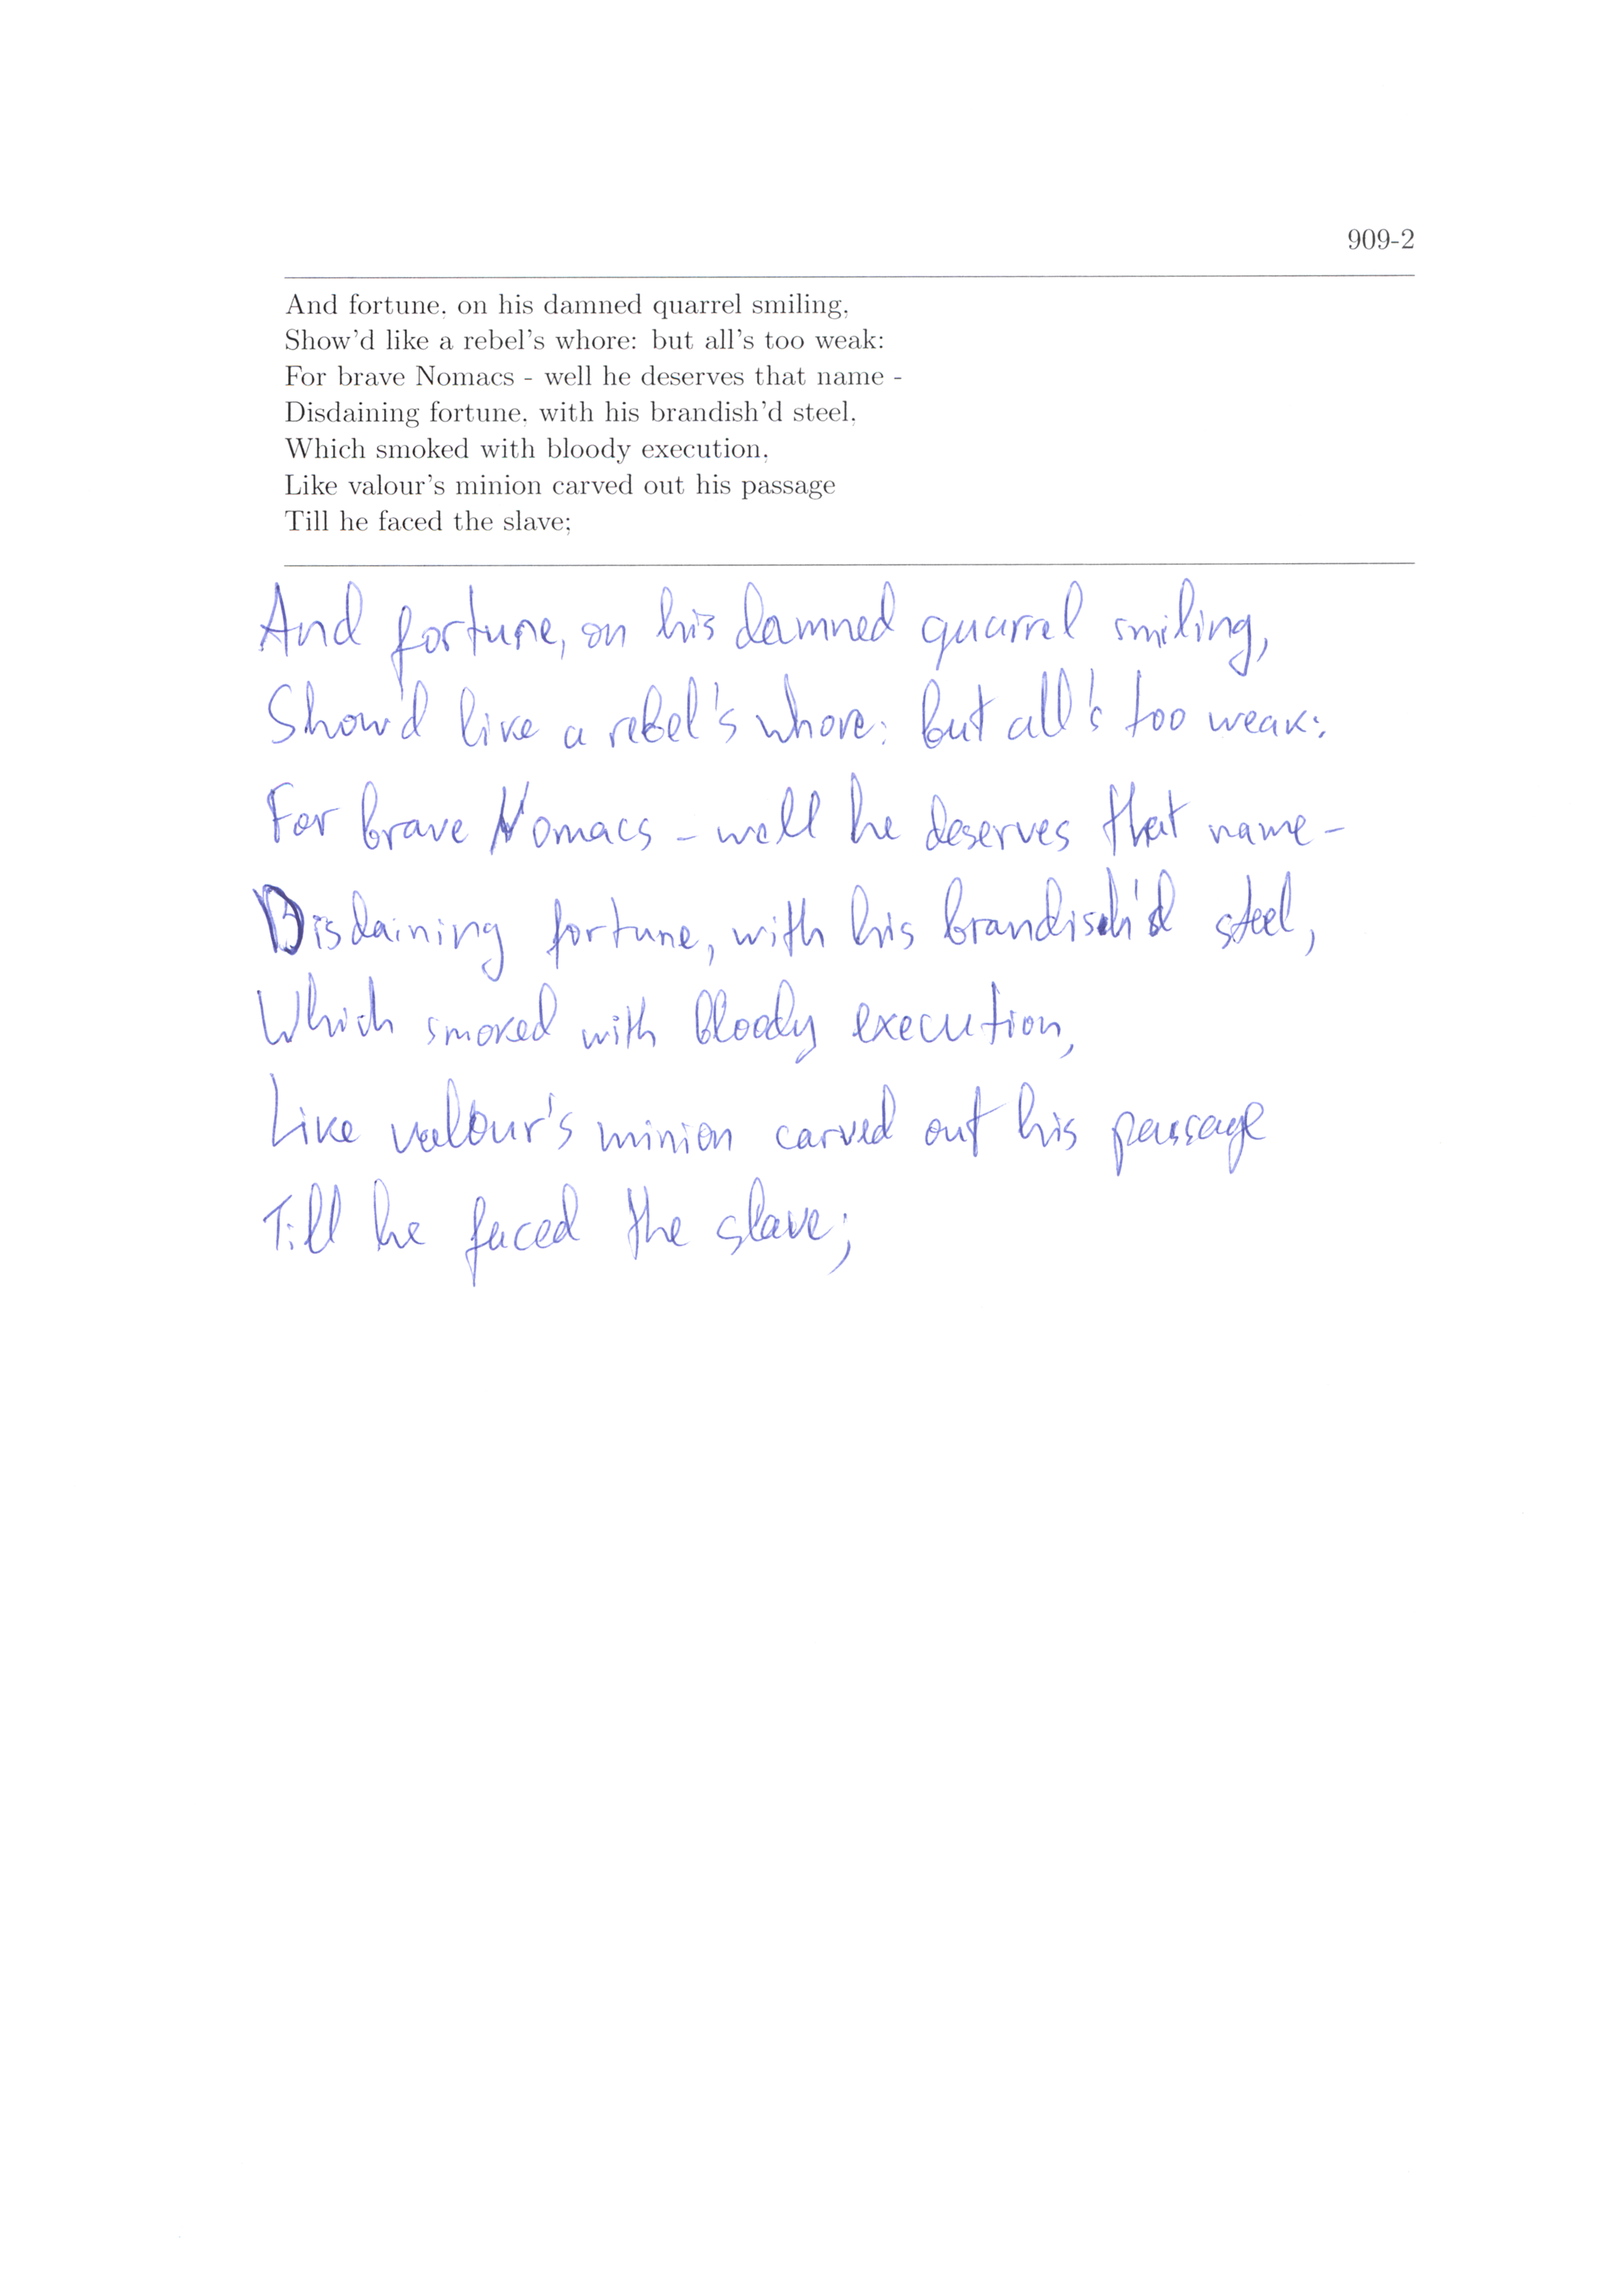 909-2
And fortune, on his damned quarrel smiling,
Show'd like a rebel's whore: but all's too weak:
For brave Nomacs - well he deserves that name -
Disdaining fortune, with his brandish'd steel,
Which smoked with bloody execution,
Like valour's minion carved out his passage
Till he faced the slave;
And fortune, on his damned quarrel smiling,
Show'd like a rebel's whore: but all's too weak:
For brave Nomacs - well he deserves that name -
Disdaining fortune, with his brandish'd steel,
Which smoked with bloody execution,
Like valour's minion carved out his passage
Till he faced the slave;